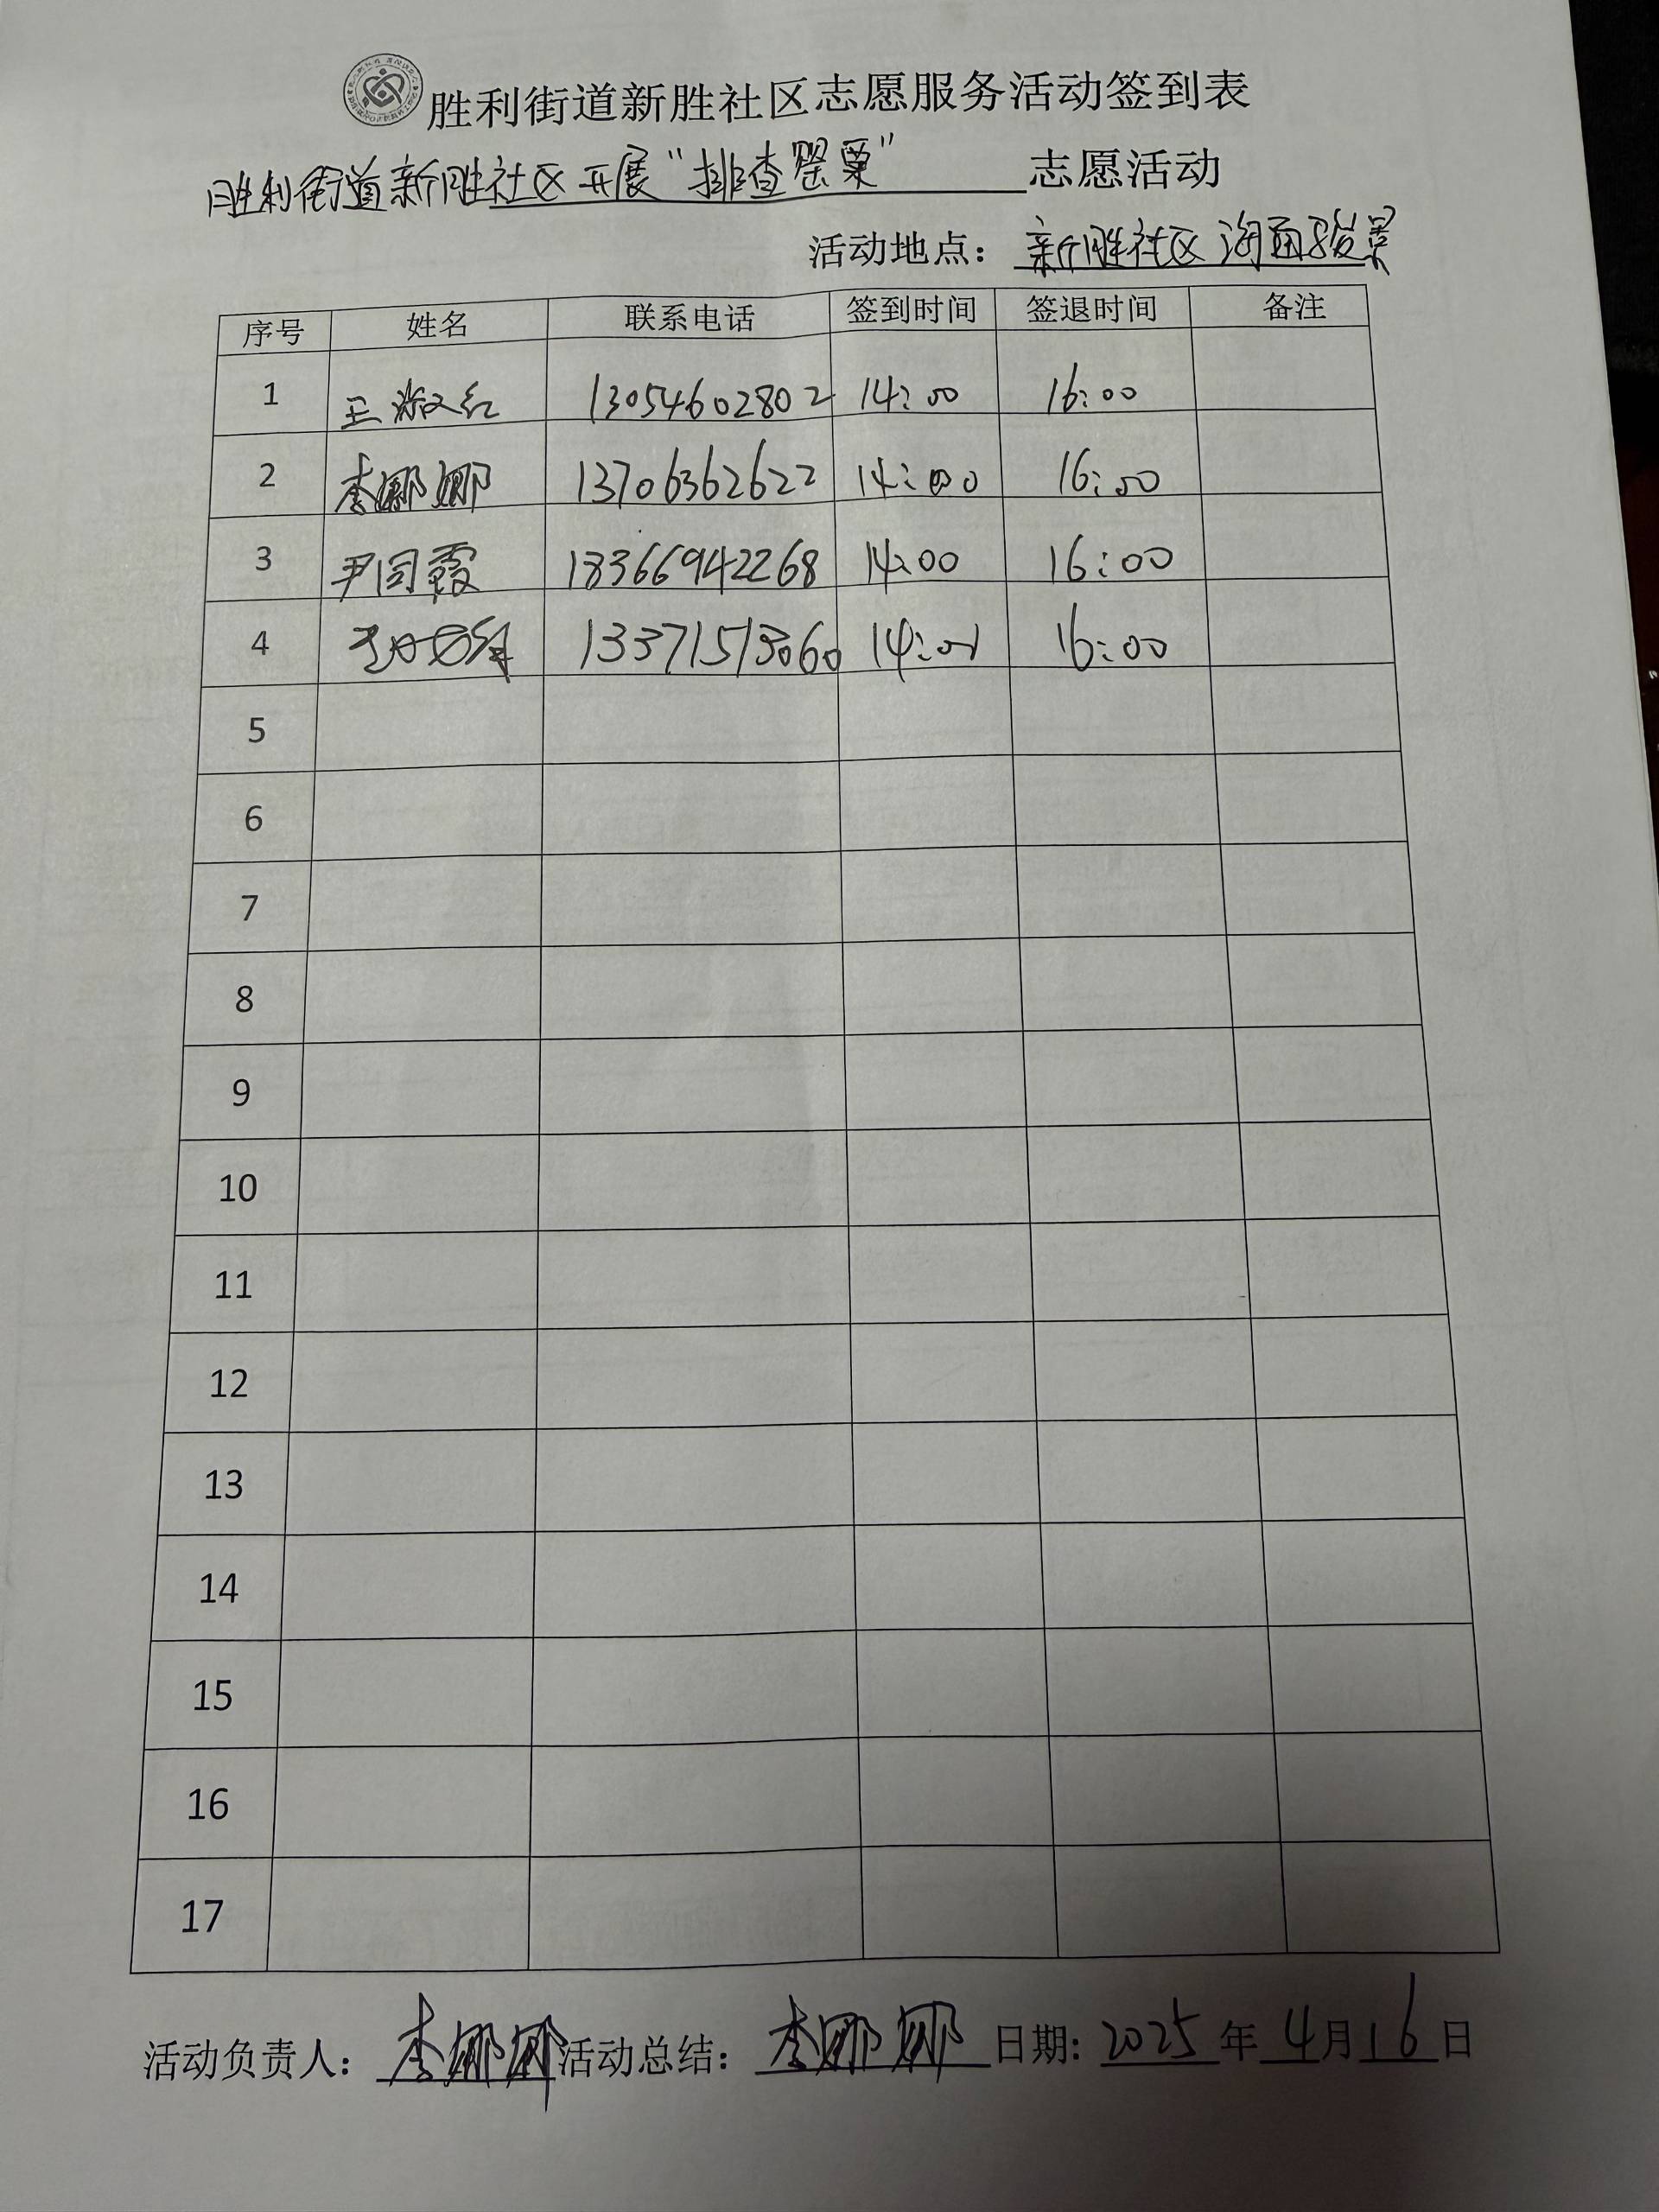 胜利街道新胜社区志愿服务活动签到表
胜利街道新胜社区开展“排查罂粟” 志愿活动
活动地点： 新胜社区 海通骏景
序号 姓名 联系电话 签到时间 签退时间 备注
1 王淑红 13054602802 14:00 16:00
2 李娜娜 13706362622 14:00 16:00
3 尹同霞 18366942268 14:00 16:00
4 13371513060 14:01 16:00
5
6
7
8
9
10
11
12
13
14
15
16
17
活动负责人： 李娜娜 活动总结： 李娜娜 日期: 2025 年 4 月 16 日